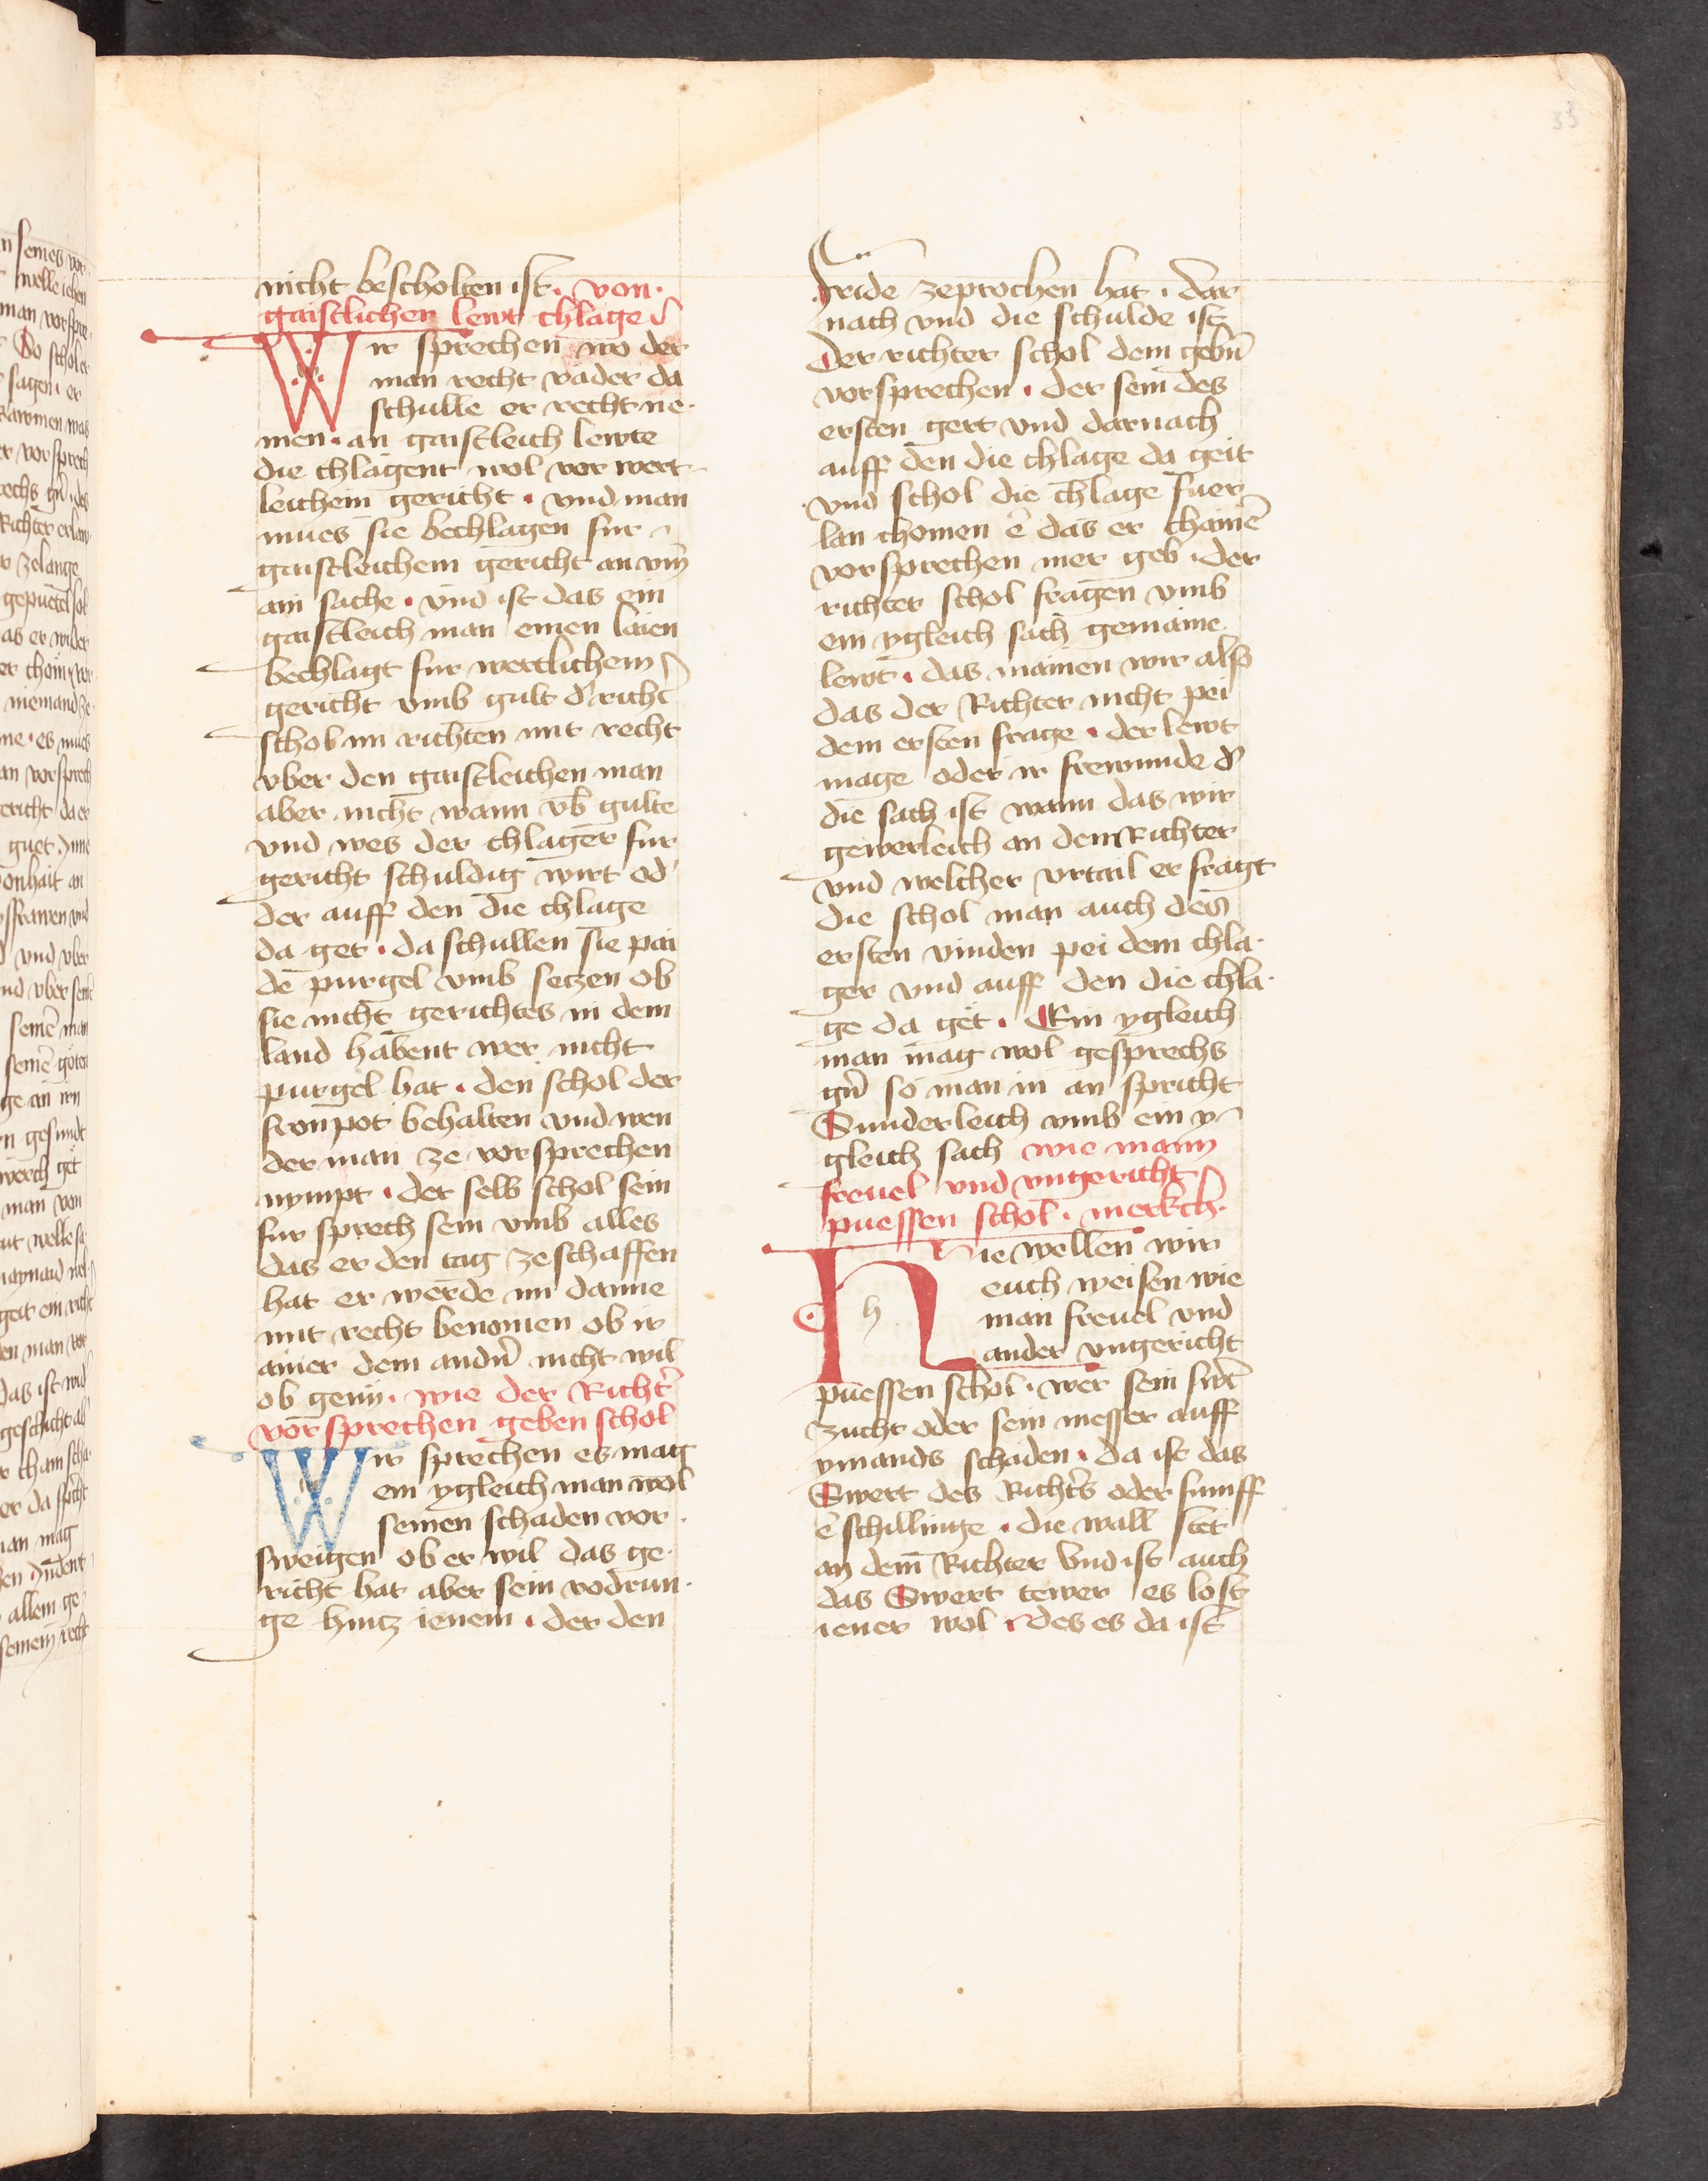 33
nicht bescholten ist. von.
gaistlicher lewt chlage
Wir sprechen wo der
man recht vader da
schulle er recht ne¬
men. an gaistleich lewte
die chlagent wol vor wert¬
leichem gericht. vnd man
mues sie bechlagen fur
gaistleichem gericht an vm̄
ain sache. vnd ist das ein
gaistleich man einen laien
bechlagt fur wertlichem
gericht vmb gult dʼ richtʼ
schol im richten mit recht
vber den gaistleichen man
aber nicht wann vb̄ gulte
vnd wes der chlager fur
gericht schuldig wirt odʼ
der auff den die chlage
da get. da schullen sie pai
dē purgel vmb setzen ob
sie nicht gerichtes in dem
land habent wer nicht
purgel hat. den schol der
fronpot behalten vnd wen
der man ze vorsprechen
nympt. der selb schol sein
fur sprech sein vmb alles
das er den tag ze schaffen
hat er werde im danne
mit recht benomen ob ir
ainer dem andn̄ nicht wil
ob genn. wie der Richtʼ
vorsprechen geben schol
Wir sprechen es mag
ein ygleich man wol
seinen schaden vor
sweigen ob er wil das ge¬
richt hat aber sein vodrun¬
ge hintz ienem. der den
fride zeprochen hat. dar
nach vnd die schulde ist
Der richter schol dem gebn̄
vorsprechen. der sein des
ersten gert vnd darnach
auff den die chlage da geit
vnd schol die chlage fuer
lan chomen ē das er chainē
vorsprechen mer geb. der
richter schol fragen vmb
ein ygleich sach gemaine
lewt. das mainen wir also
das der Richter nicht pei
dem ersten frage. der lewt
mage oder ir frewnnde dʼ
die sach ist wann das wir
gewerleich an dem Richter
vnd welcher vrtail er fragt
die schol man auch des
ersten vinden pei dem chla¬
ger vnd auff den die chla¬
ge da get. Ein ygleich
man mag wol gesprechs
gn̄ so man in an spricht
Sunderleich vmb ein y
gleich sach wie mann
freuel vnd vngericht
puessen schol. merkch.
h
Hie wellen wir
euch weisen wie
man freuel vnd
ander vngericht
puessen schol. wer sein swʼt
zucht oder sein messer auff
ymands schaden. da ist das
Swert des Richtʼs oder fumff
ē schillinge. die wall stet
an dem Richter Vnd ist auch
das Swert tewer es lost
iener wol. des es da ist